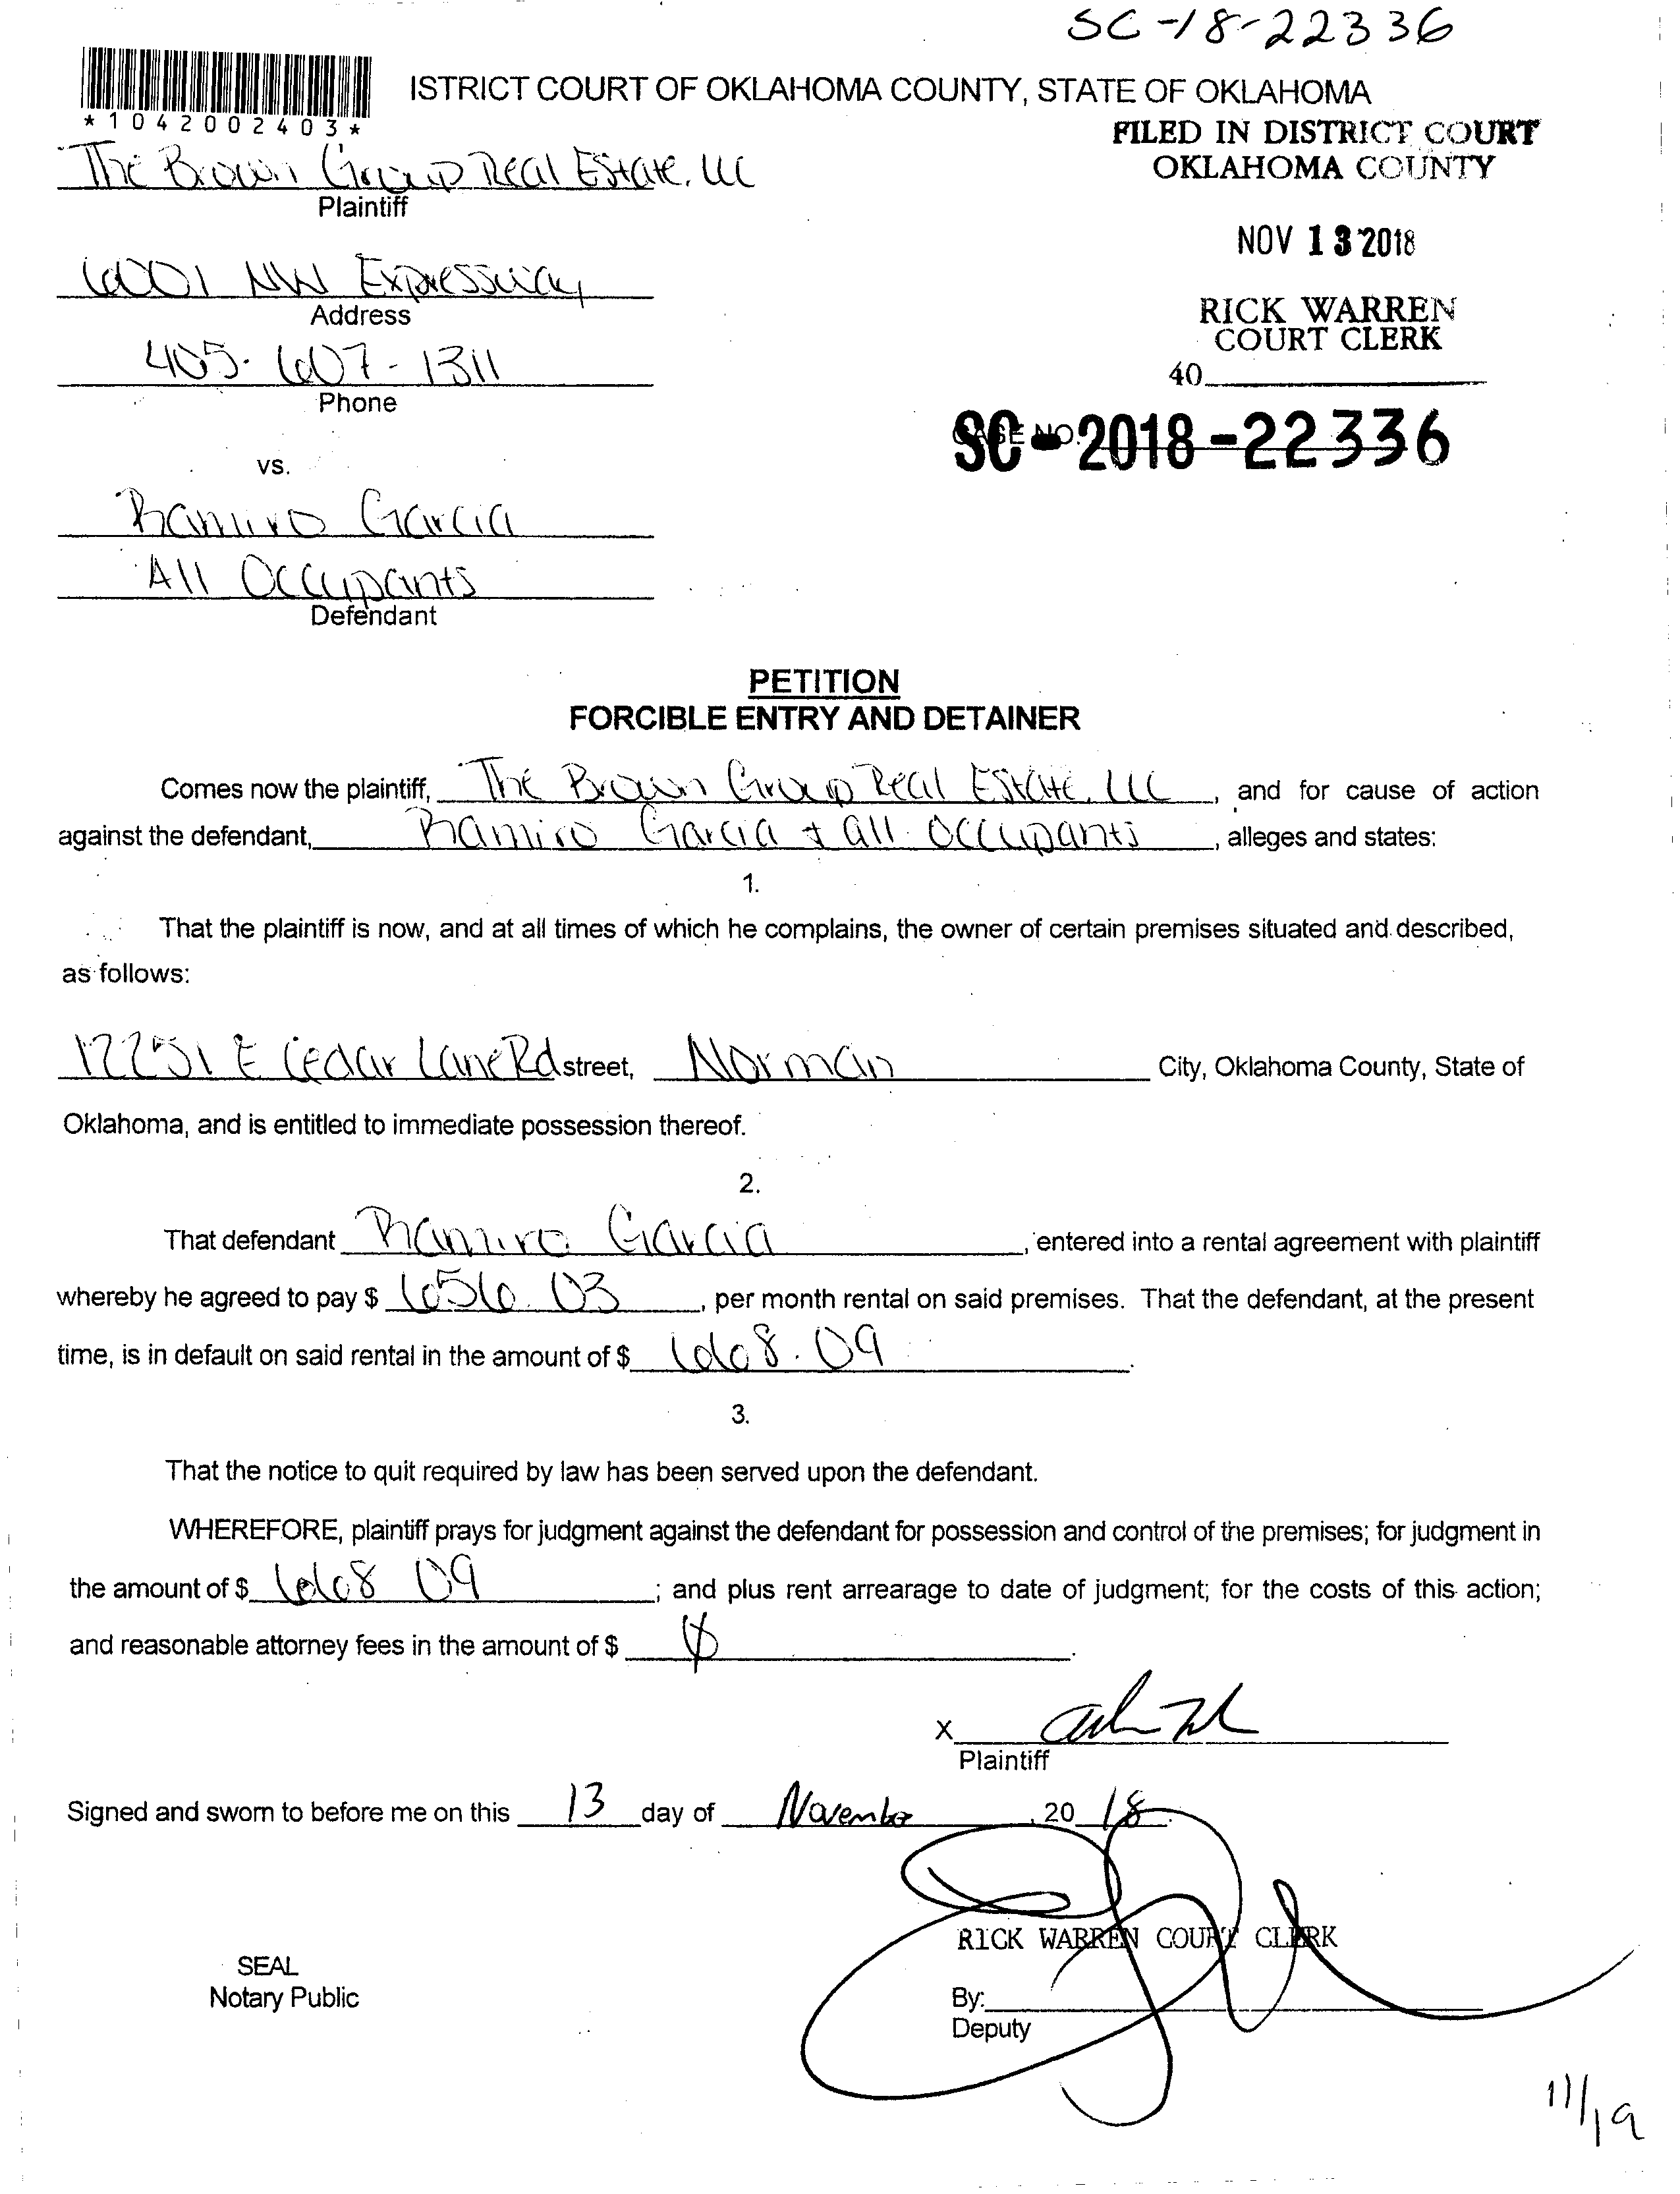 SC-18-22336
ISTRICT COURT OF OKLAHOMA COUNTY, STATE OF OKLAHOMA
*1042002403*
FILED IN DISTRICT COURT
OKLAHOMA COUNTY
The Brown Group Real Estate, LLC
Plaintiff
NOV 13 2018
6001 NW Expressway
Address
RICK WARREN
COURT CLERK
405-607-1311
40
Phone
CASE NO.
SC-2018-22336
vs.
Ramiro Garcia
All Occupants
Defendant
PETITION
FORCIBLE ENTRY AND DETAINER
Comes now the plaintiff, The Brown Group Real Estate, LLC, and for cause of action
against the defendant, Ramiro Garcia + all occupants, alleges and states:
1.
That the plaintiff is now, and at all times of which he complains, the owner of certain premises situated and described,
as follows:
12251 E Cedar Lane Rd street, Norman City, Oklahoma County, State of
Oklahoma, and is entitled to immediate possession thereof.
2.
That defendant Ramiro Garcia, entered into a rental agreement with plaintiff
whereby he agreed to pay $ 656.03, per month rental on said premises. That the defendant, at the present
time, is in default on said rental in the amount of $ 668.09.
3.
That the notice to quit required by law has been served upon the defendant.
WHEREFORE, plaintiff prays for judgment against the defendant for possession and control of the premises; for judgment in
the amount of $ 668 09; and plus rent arrearage to date of judgment; for the costs of this action;
and reasonable attorney fees in the amount of $ .
X
Plaintiff
Signed and sworn to before me on this 13 day of November, 20 18.
RICK WARREN COURT CLERK
SEAL
Notary Public
By:
Deputy
11/19